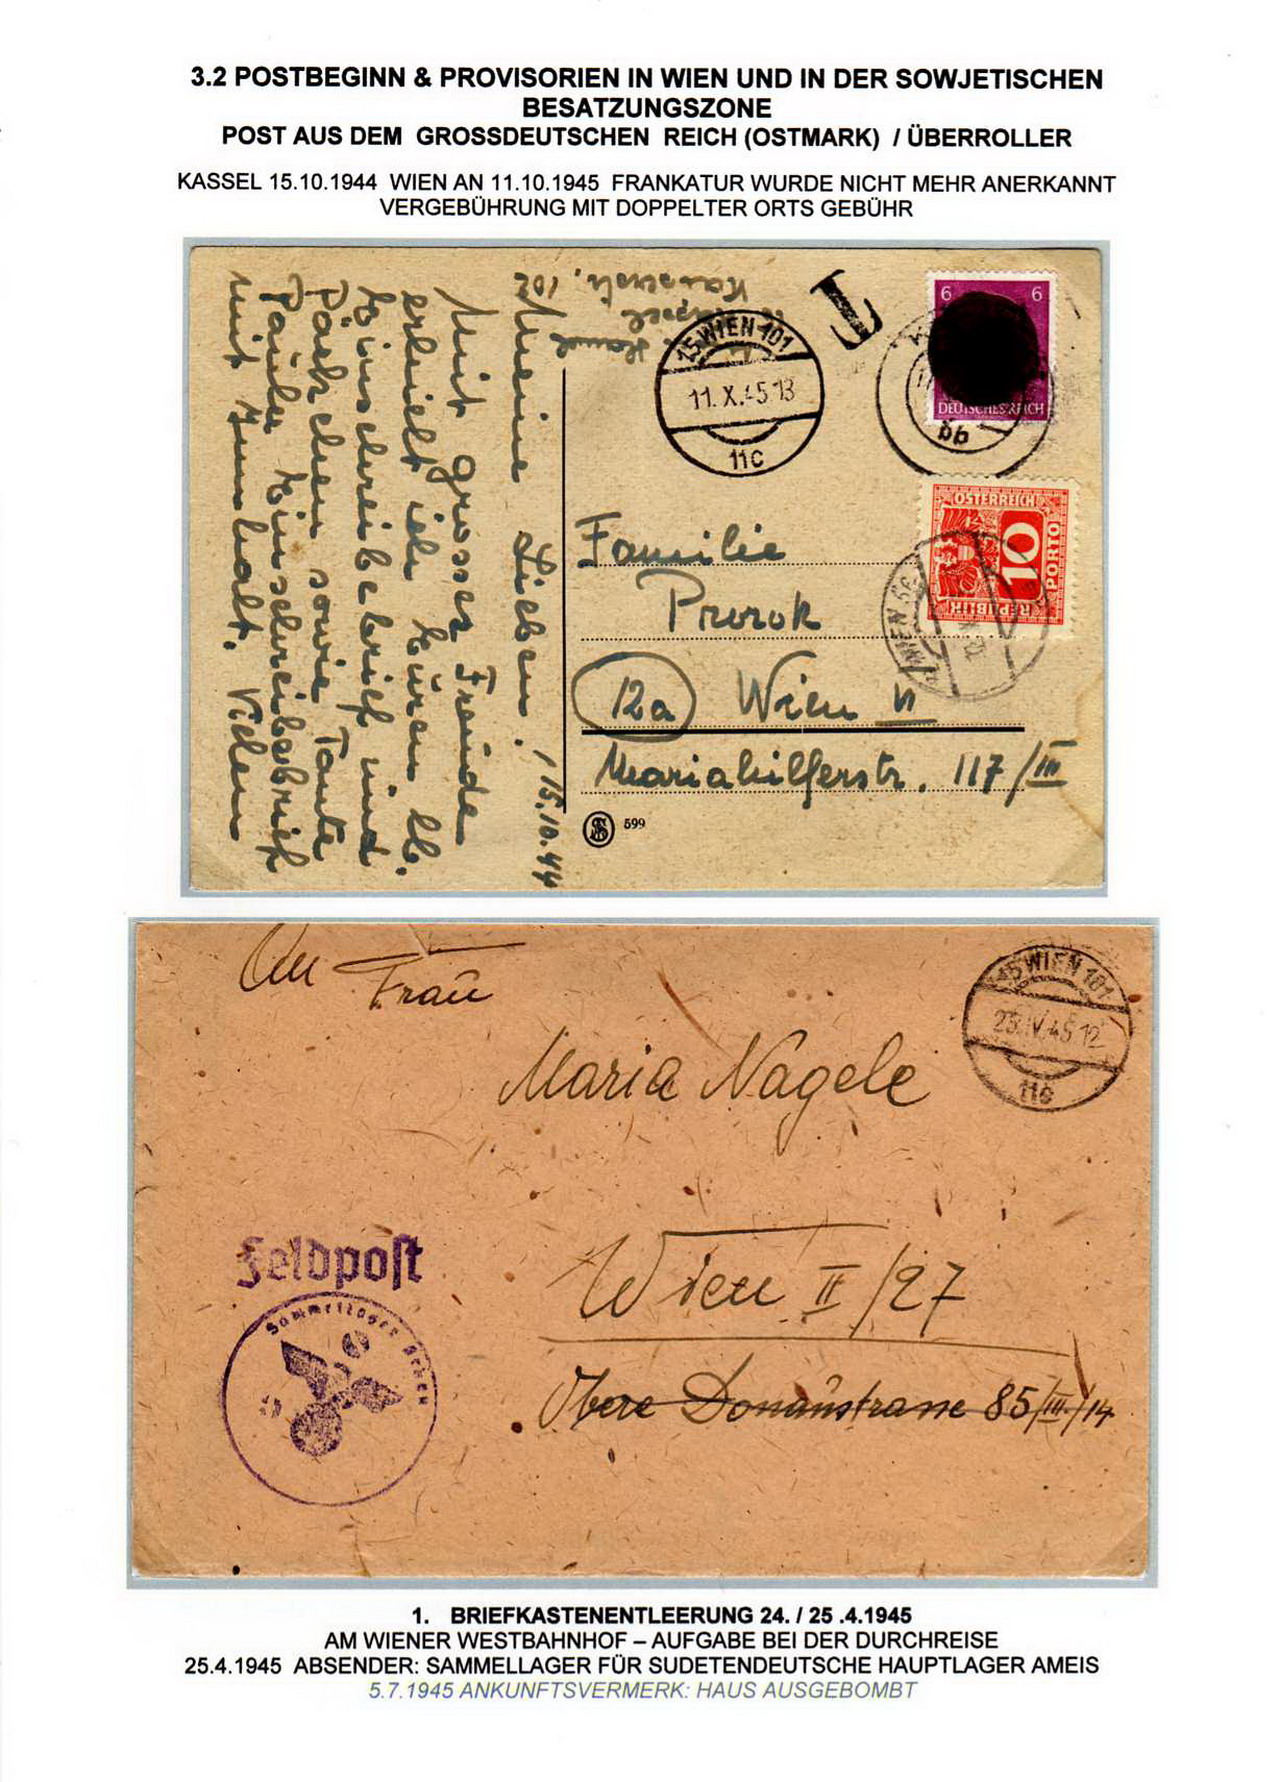 3.2 POSTBEGINN & PROVISORIEN IN WIEN UND IN DER SOWJETISCHEN
BESATZUNGSZONE
POST AUS DEM GROSSDEUTSCHEN REICH (OSTMARK) / ÜBERROLLER
KASSEL 15.10.1944 WIEN AN 11.10.1945 FRANKATUR WURDE NICHT MEHR ANERKANNT
VERGEBÜHRUNG MIT DOPPELTER ORTS GEBÜHR
Kassel
15 WIEN 101
11.X.45 13
11c
T
6 6
DEUTSCHES REICH
bb
ÖSTERREICH
10
PORTO
REPUBLIK
WIEN 56
Meine Lieben! 15.10.44
Mit grosser Freude
erhielt ich Euren lb.
Einschreibebrief und
Päckchen sowie Tante
Paula Einschreibebrief
mit Innhalt. Vielen
Familie
Prorok
12a Wien VI
Mariahilferstr. 117/III
599
An
Frau
Maria Nagele
15 WIEN 101
25.IV.45 12
11c
Wien II/27
Obere Donaustrasse 85/III./14
Feldpost
Sammellager
1. BRIEFKASTENENTLEERUNG 24. / 25 .4.1945
AM WIENER WESTBAHNHOF – AUFGABE BEI DER DURCHREISE
25.4.1945 ABSENDER: SAMMELLAGER FÜR SUDETENDEUTSCHE HAUPTLAGER AMEIS
5.7.1945 ANKUNFTSVERMERK: HAUS AUSGEBOMBT